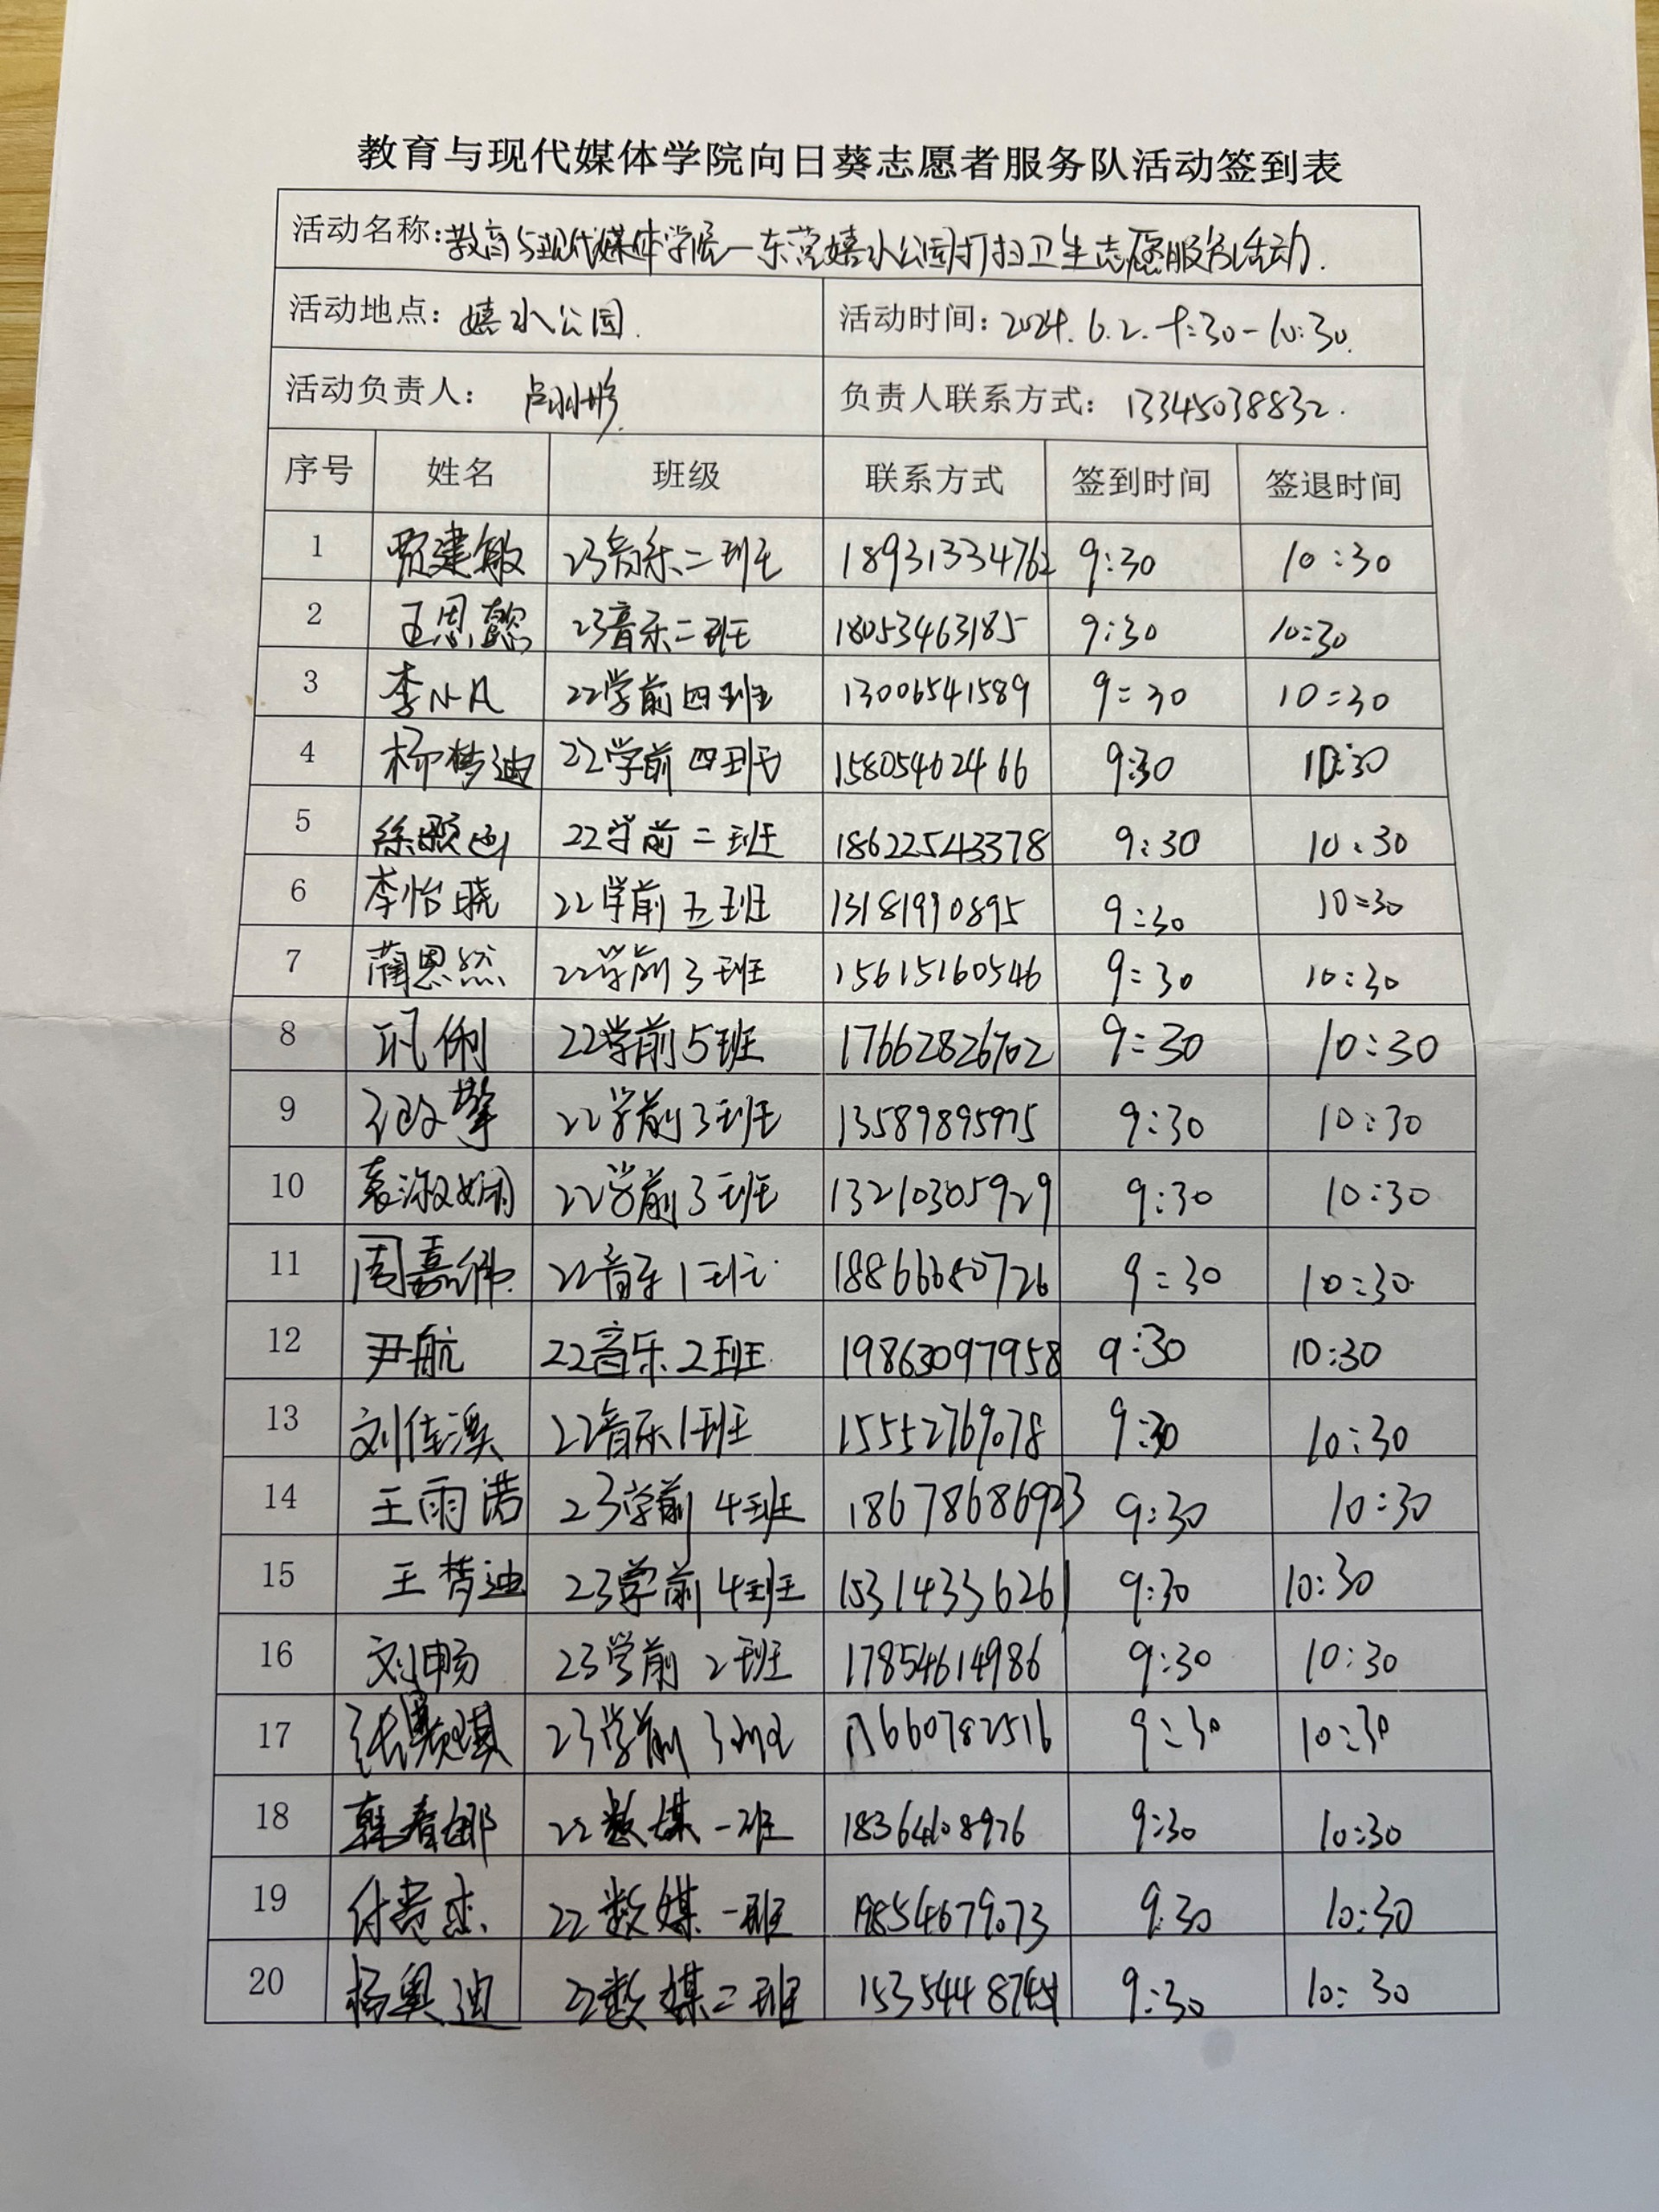 教育与现代媒体学院向日葵志愿者服务队活动签到表
活动名称:教育与现代媒体学院—东营嬉水公园打扫卫生志愿服务活动.
活动地点: 嬉水公园. 活动时间: 2024.6.2. 9:30-10:30.
活动负责人: 负责人联系方式: 13345038832.
序号 姓名 班级 联系方式 签到时间 签退时间
1 贾建敏 23音乐二班 18931334762 9:30 10:30
2 王思懿 23音乐二班 18053463185 9:30 10:30
3 李小凡 22学前四班 13006541589 9:30 10:30
4 杨梦迪 22学前四班 15805462466 9:30 10:30
5 22学前二班 18622543378 9:30 10:30
6 李怡晓 22学前五班 13181990895 9:30 10:30
7 蔺恩然 22学前3班 15615160546 9:30 10:30
8 巩俐 22学前5班 17662826702 9:30 10:30
9 22学前3班 13589895975 9:30 10:30
10 袁淑娴 22学前3班 13210305929 9:30 10:30
11 周嘉伟 22音乐1班 18866680726 9:30 10:30
12 尹航 22音乐2班 19863097958 9:30 10:30
13 刘佳溪 22音乐1班 15552769078 9:30 10:30
14 王雨诺 23学前4班 18678686923 9:30 10:30
15 王梦迪 23学前4班 15314336261 9:30 10:30
16 刘畅 23学前2班 17854614986 9:30 10:30
17 23学前3班 9:30 10:30
18 韩春娜 22数媒一班 9:30 10:30
19 22数媒一班 19854679073 9:30 10:30
20 杨奥迪 22数媒二班 9:30 10:30